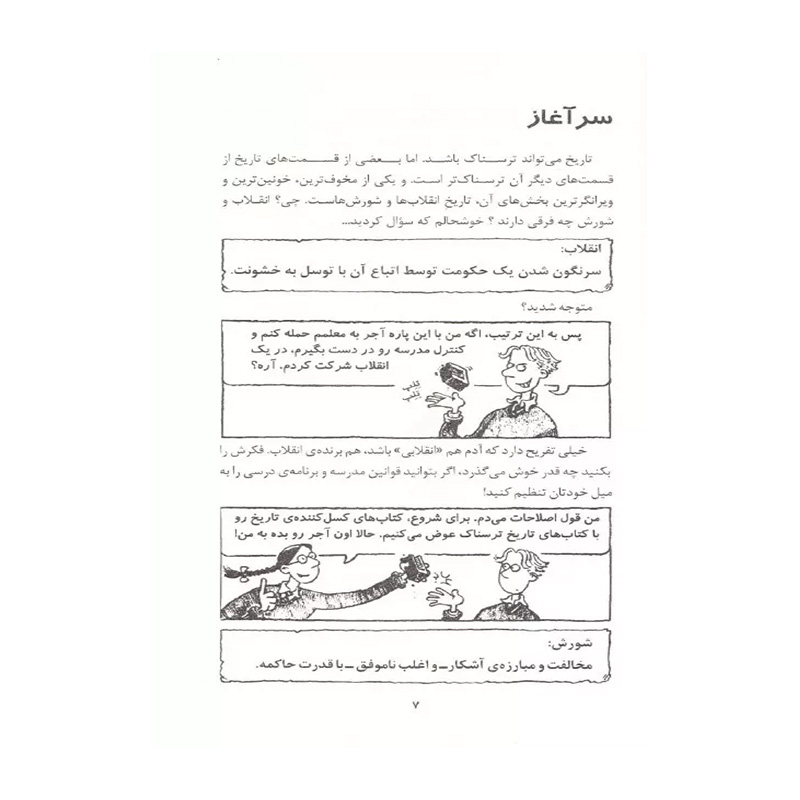 سرآغاز
تاریخ می‌تواند ترسناک باشد. اما بعضی از قسمت‌های تاریخ از
قسمت‌های دیگر آن ترسناک‌تر است. و یکی از مخوف‌ترین، خونین‌ترین و
ویرانگرترین بخش‌های آن، تاریخ انقلاب‌ها و شورش‌هاست. چی؟ انقلاب و
شورش چه فرقی دارند؟ خوشحالم که سؤال کردید...
انقلاب:
سرنگون شدن یک حکومت توسط اتباع آن با توسل به خشونت.
متوجه شدید؟
پس به این ترتیب، اگه من با این پاره آجر به معلمم حمله کنم و
کنترل مدرسه رو در دست بگیرم، در یک
انقلاب شرکت کردم. آره؟
تلپ
تلپ
خیلی تفریح دارد که آدم هم «انقلابی» باشد، هم برنده‌ی انقلاب. فکرش را
بکنید چه قدر خوش می‌گذرد، اگر بتوانید قوانین مدرسه و برنامه‌ی درسی را به
میل خودتان تنظیم کنید!
من قول اصلاحات می‌دم. برای شروع، کتاب‌های کسل‌کننده‌ی تاریخ رو
با کتاب‌های تاریخ ترسناک عوض می‌کنیم. حالا اون آجر رو بده به من!
شورش:
مخالفت و مبارزه‌ی آشکار ـ و اغلب ناموفق ـ با قدرت حاکمه.
۷